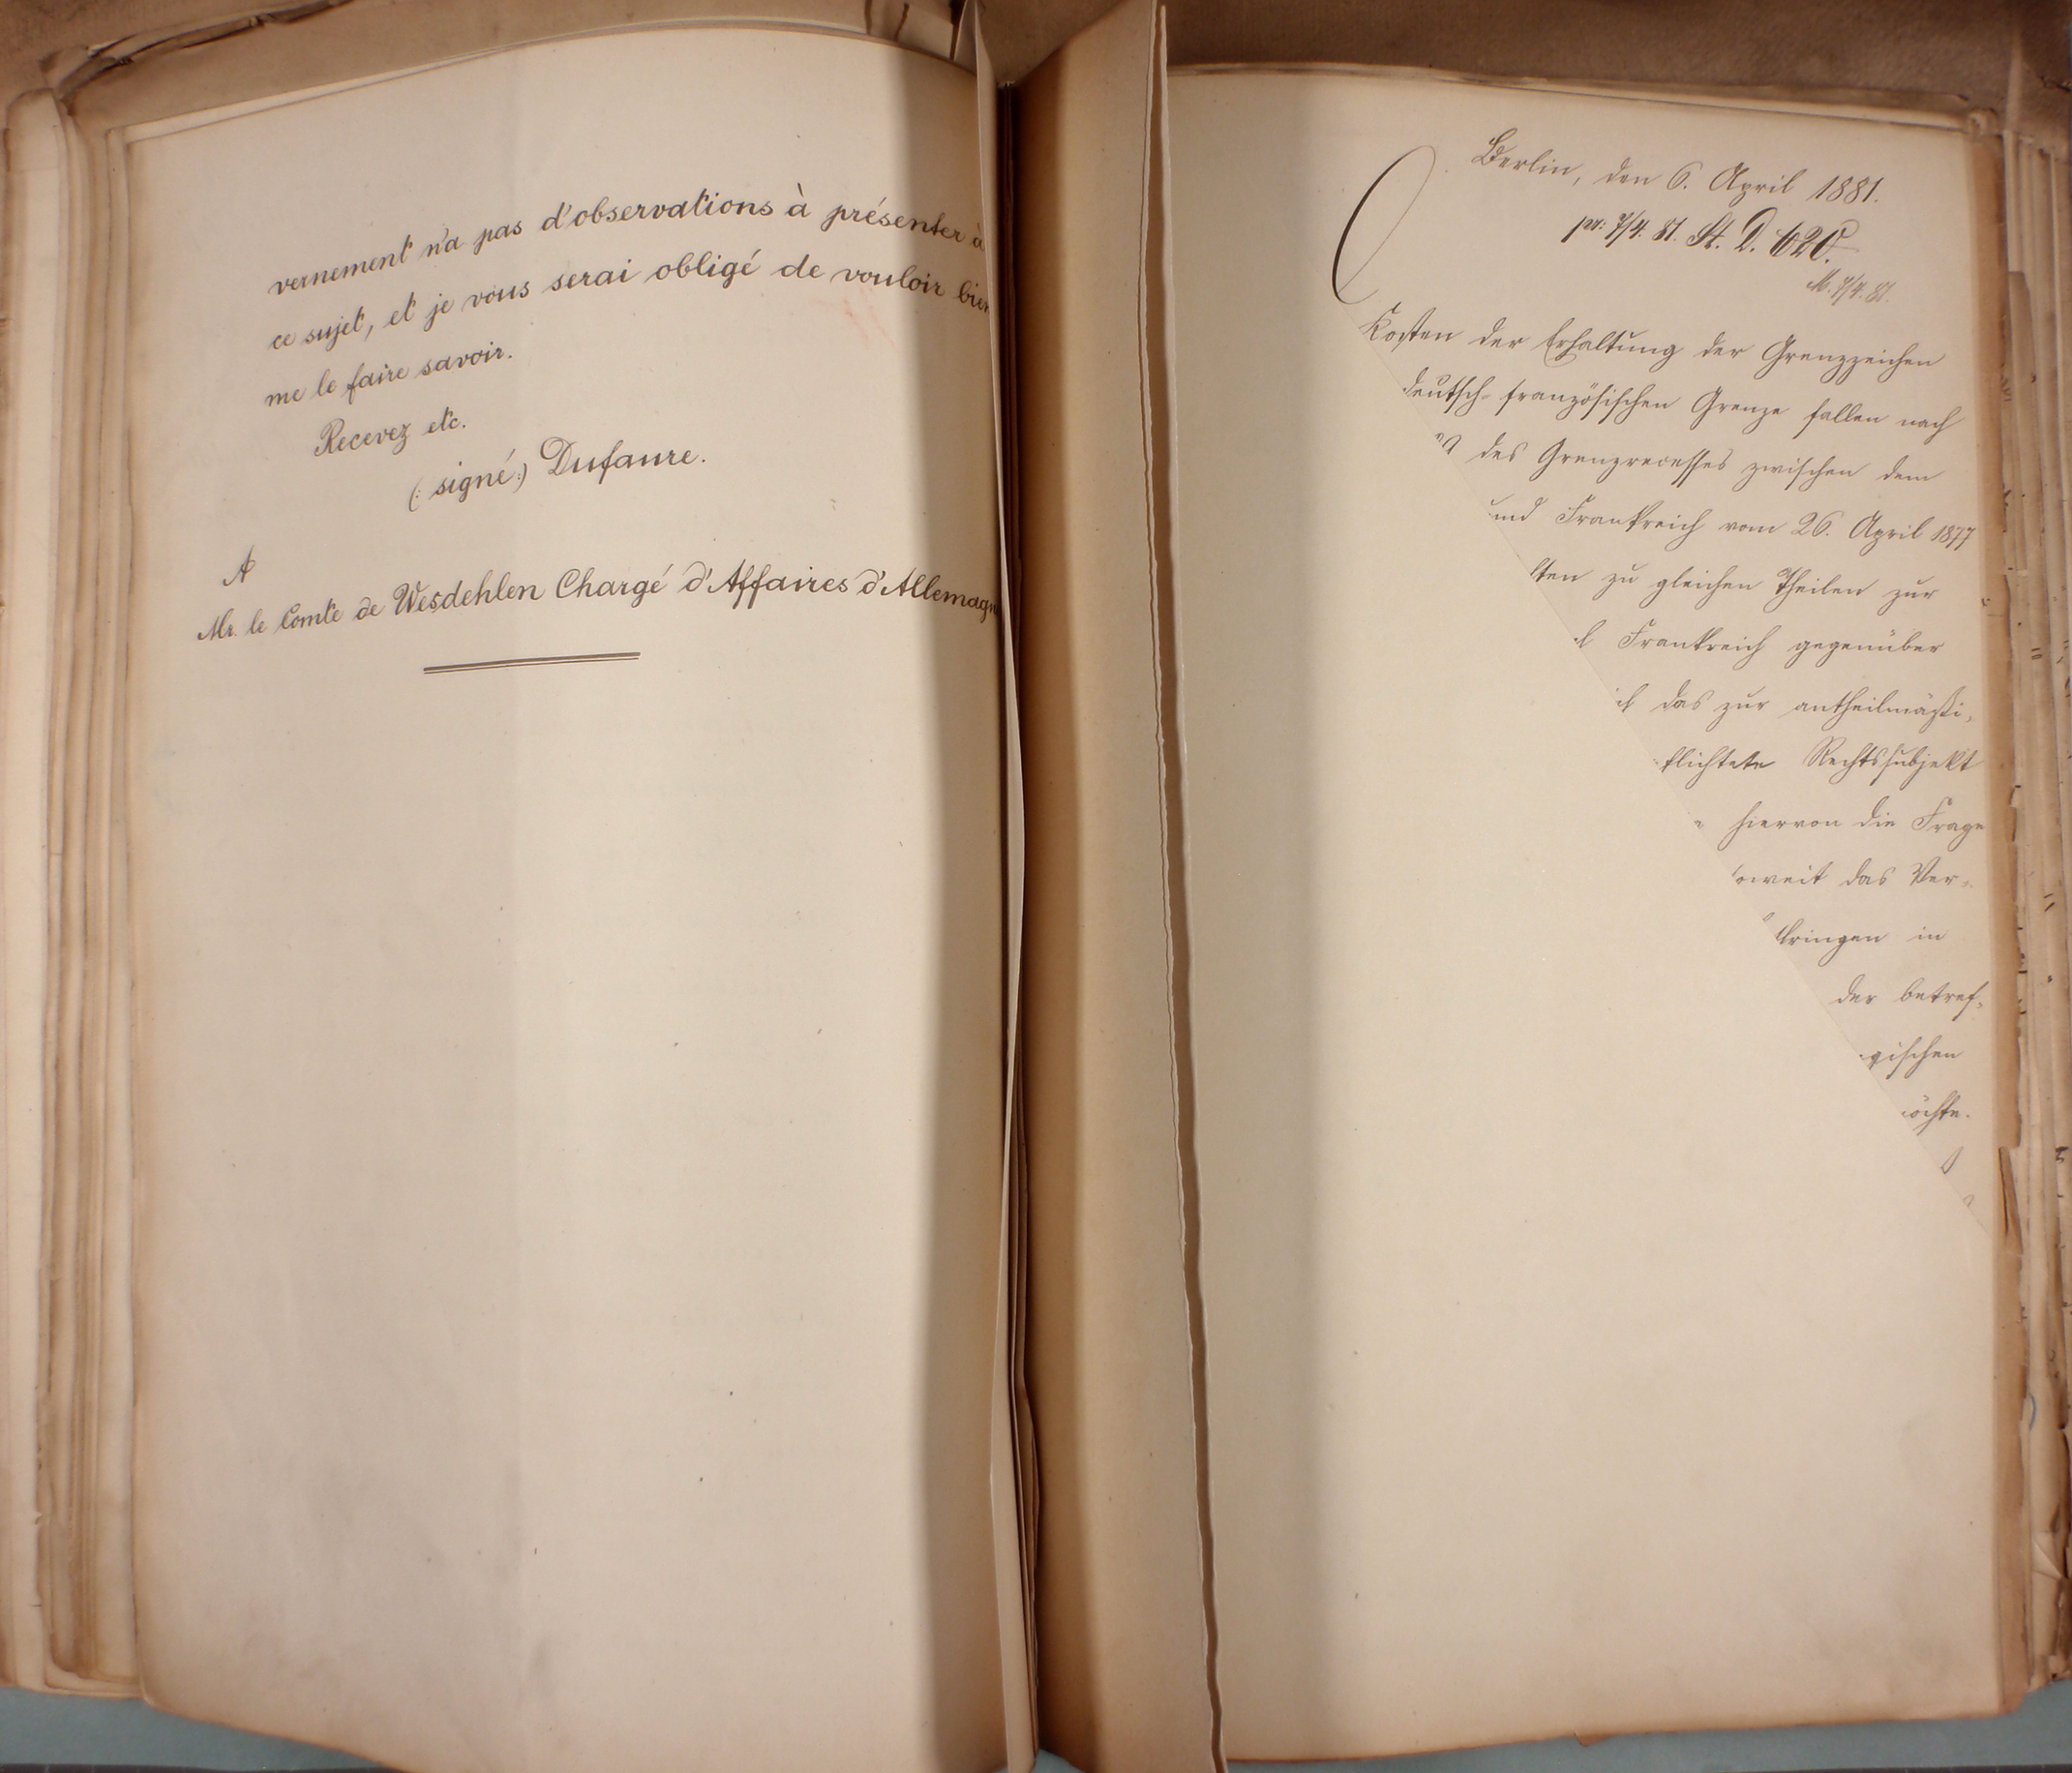 vernement n'a pas d'observations à présenter à
ce sujet, et je vous serai obligé de vouloir bien
me le faire savoir.
Recevez etc.
(: signé :) Dufaure.
A
Mr. le Comte de Wesdehlen Chargé d'Affaires d'Allemagne
Berlin, den 6. April 1881.
pr. 7/4. 81. St. D. 620.
M. 7/4. 81.
Kosten der Erhaltung der Grenzzeichen
deutsch-französischen Grenze fallen nach
des Grenzrecesses zwischen dem
und Frankreich vom 26. April 1877
lten zu gleichen Theilen zur
Frankreich gegenüber
das zur antheilmäßi-
flichtete Rechtssubjekt
hiervon die Frage
soweit das Ver-
bringen in
der betref-
gischen
öchte.